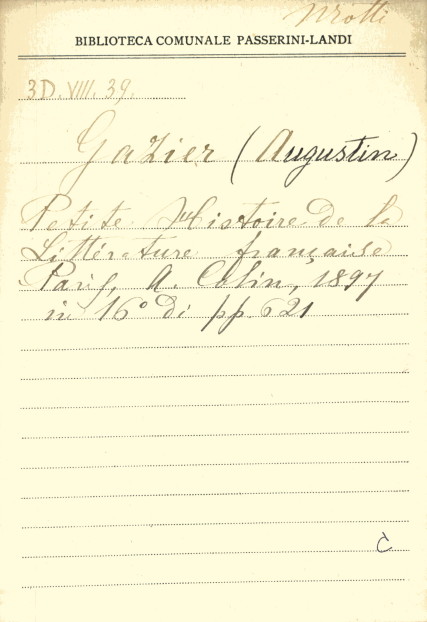 BIBLIOTECA COMUNALE PASSERINI-LANDI
3D. VIII. 39.
Gazier (Augustin)
Petite Histoire de la
Littérature française
Paris, A. Colin, 1897
in 16° di pp. 621
C